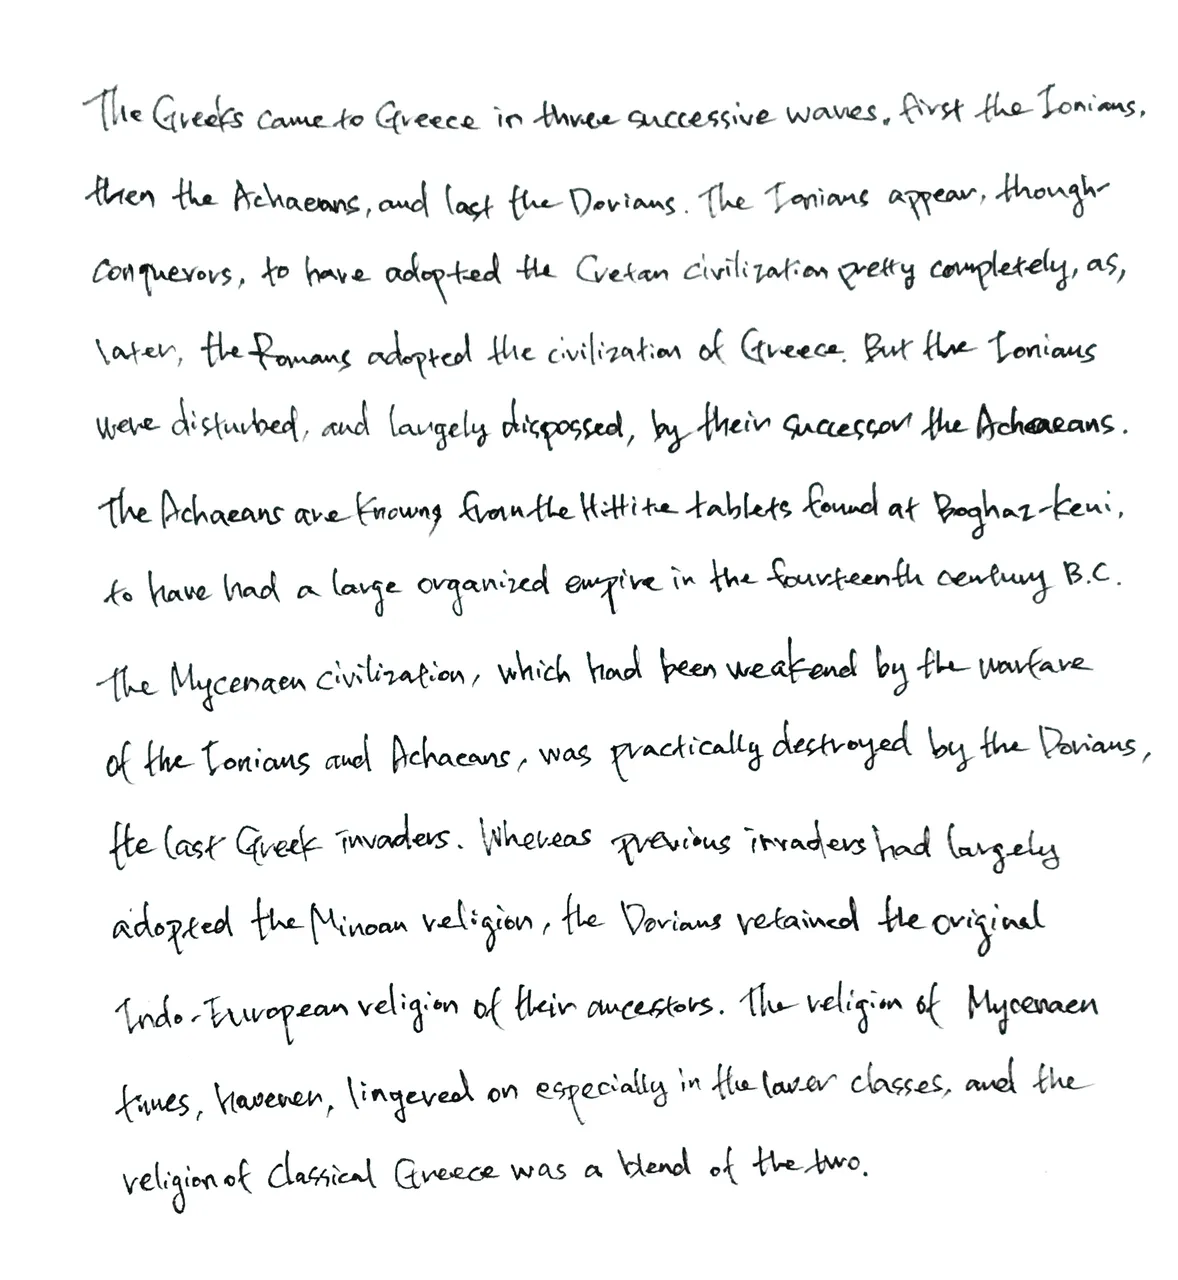 The Greeks came to Greece in three successive waves, first the Ionians,
then the Achaeans, and last the Dorians. The Ionians appear, though
conquerors, to have adopted the Cretan civilization pretty completely, as,
later, the Romans adopted the civilization of Greece. But the Ionians
were disturbed, and largely dispossed, by their successor the Achaeans.
The Achaeans are knowng from the Hittite tablets found at Boghaz-Keui,
to have had a large organized empire in the fourteenth century B.C.
The Mycenaen civilization, which had been weakend by the warfare
of the Ionians and Achaeans, was practically destroyed by the Dorians,
the last Greek invaders. Whereas previous invaders had largely
adopted the Minoan religion, the Dorians retained the original
Indo-European religion of their ancestors. The religion of Mycenaen
times, however, lingered on especially in the lower classes, and the
religion of classical Greece was a blend of the two.